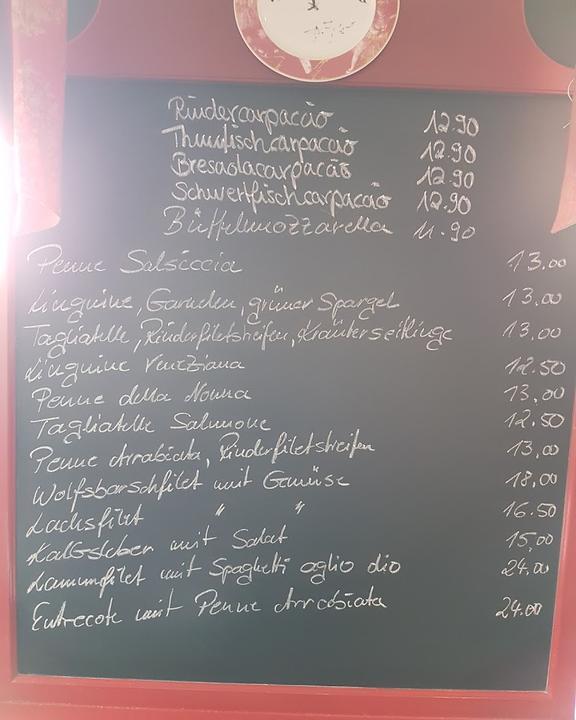 Rindercarpaccio 12.90
Thunfischcarpaccio 12.90
Bresaolacarpaccio 12.90
Schwertfischcarpaccio 12.90
Büffelmozzarella 11.90
Penne Salsiccia 13.00
Linguine, Garnelen, grüner Spargel 13.00
Tagliatelle, Rinderfiletstreifen, Kräuterseitlinge 13.00
Linguine Veneziana 12.50
Penne della Nonna 13,00
Tagliatelle Salmone 12,50
Penne Arrabiata, Rinderfiletstreifen 13,00
Wolfsbarschfilet mit Gemüse 18,00
Lachsfilet " " 16.50
Kalbsleber mit Salat 15,00
Lammfilet mit Spaghetti aglio olio 24.00
Entrecote mit Penne Arrabiata 24.00